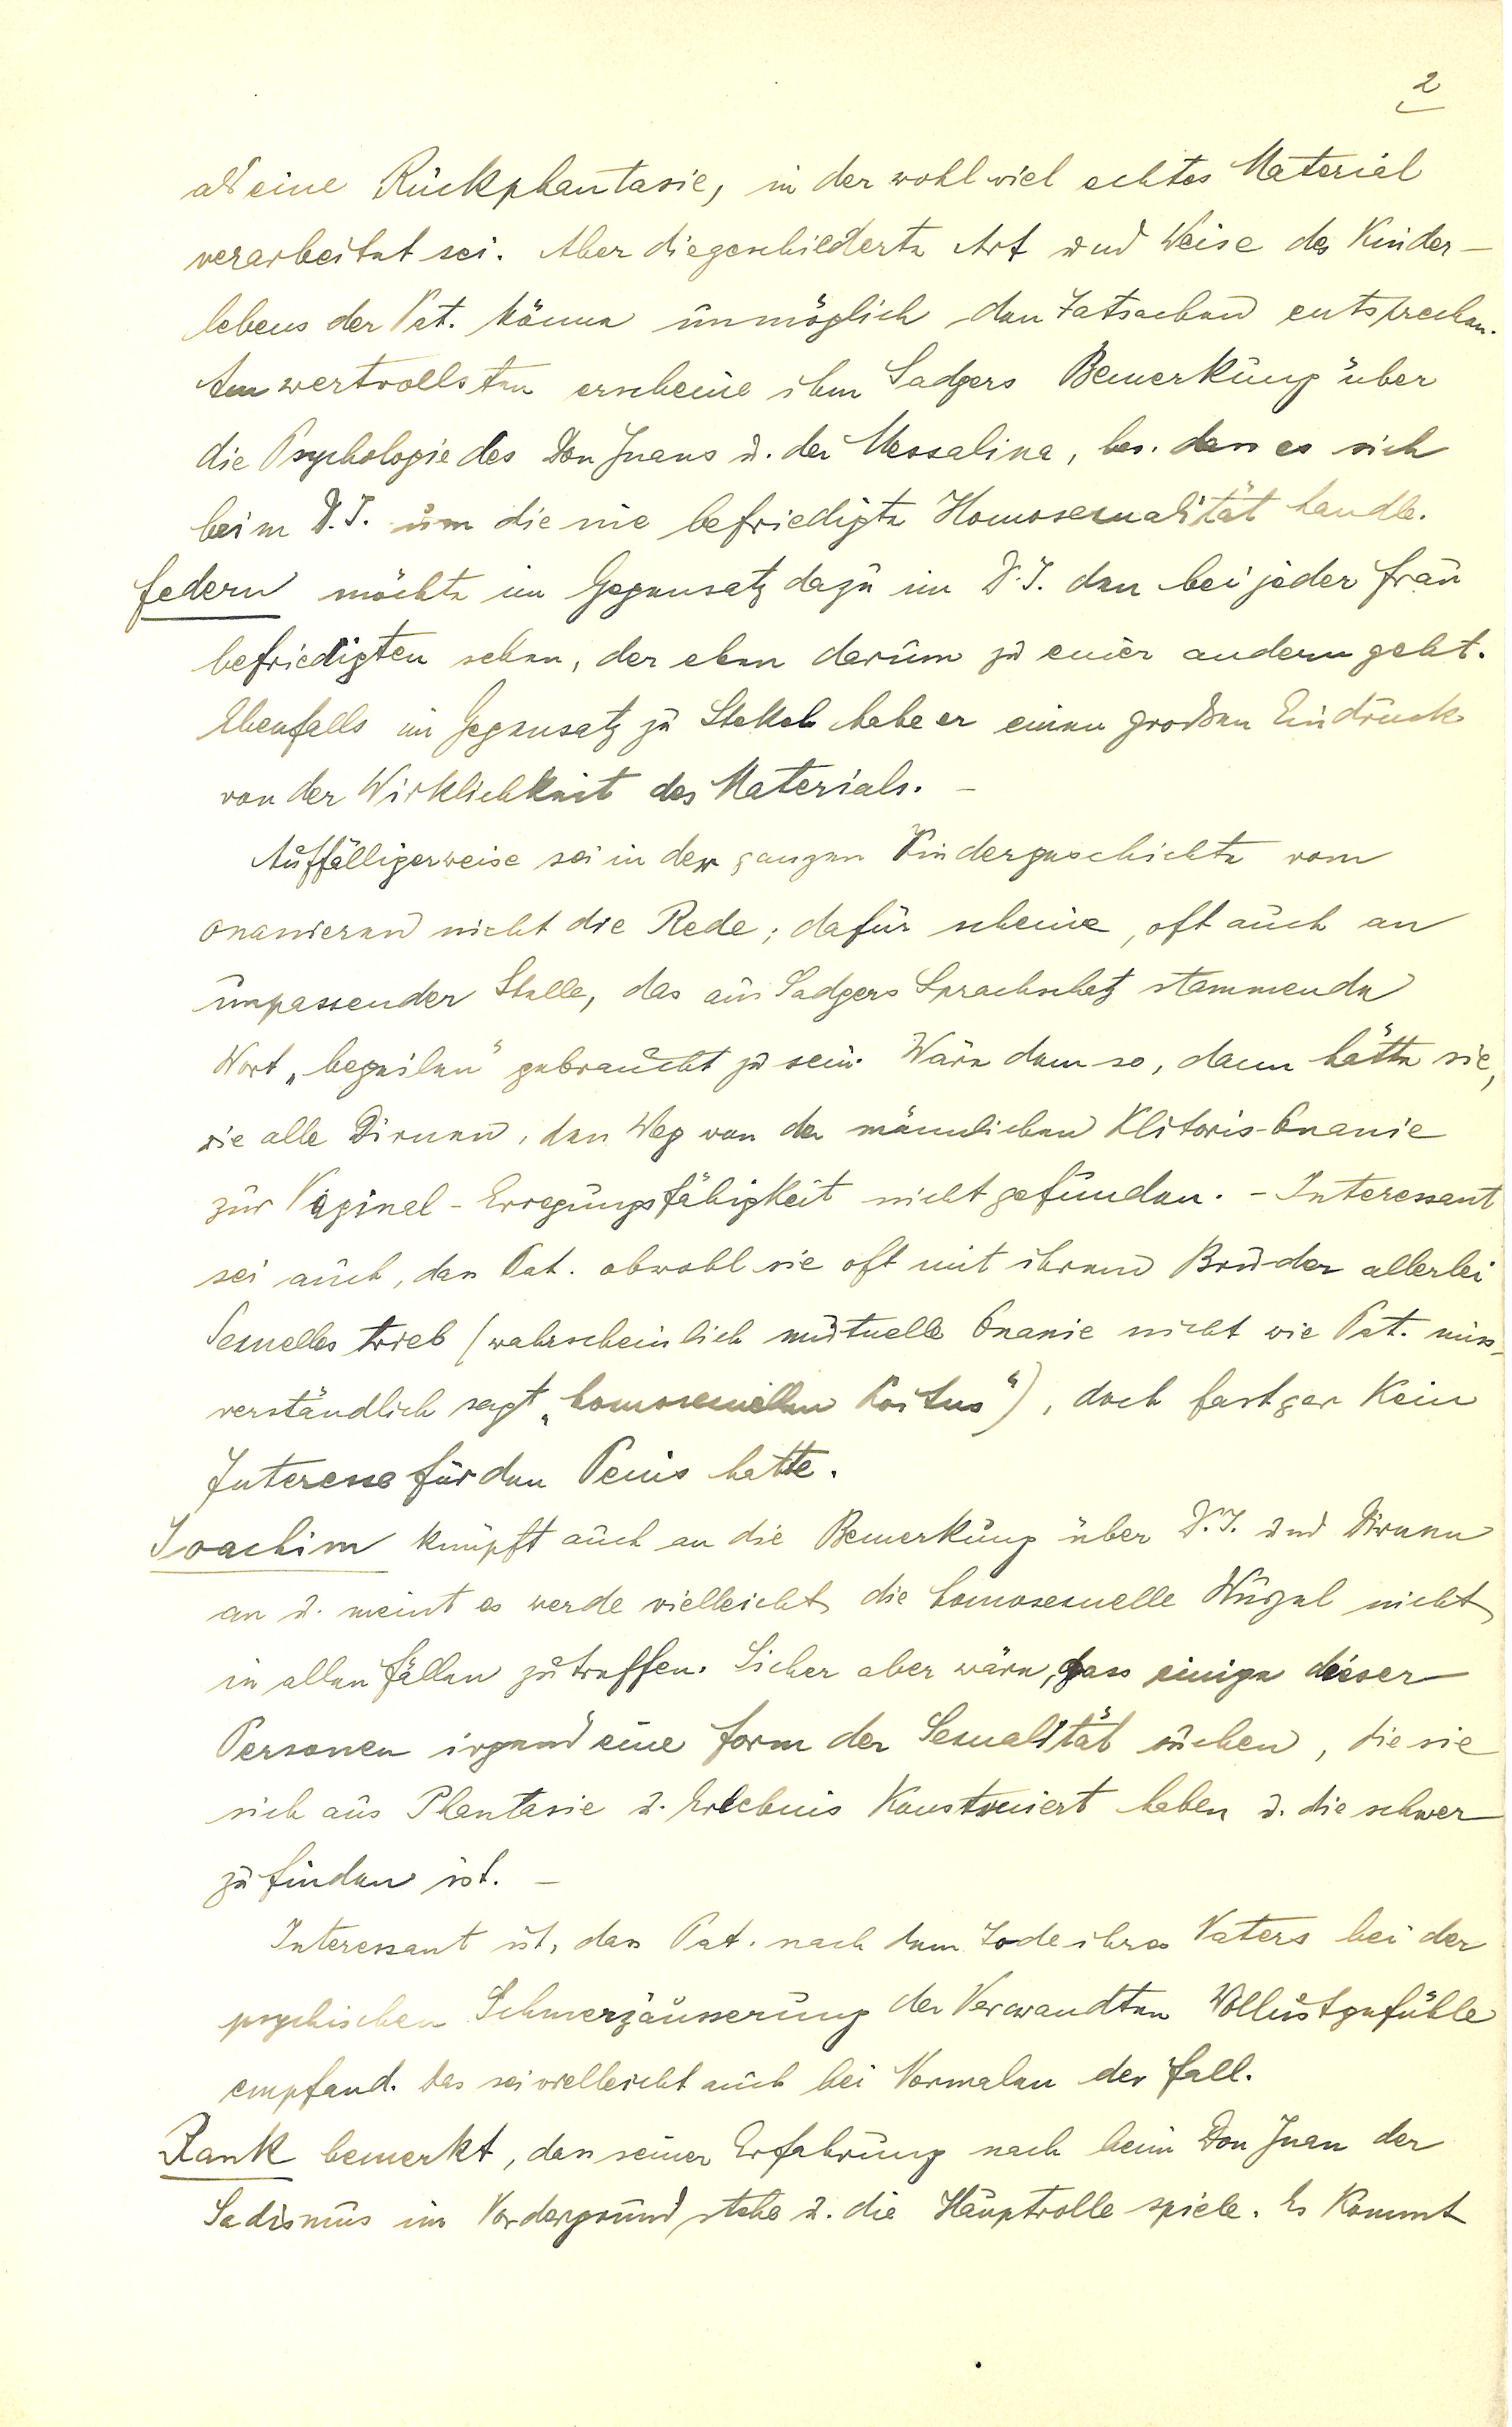 2
als eine Rückphantasie, in der wohl viel echtes Material
verarbeitet sei. Aber die geschilderte Art und Weise des Kinder-
lebens der Pat. könne unmöglich den Tatsachen entsprechen.
Am wertvollsten erscheine ihm Sadgers Bemerkung über
die Psychologie des Don Juans u. der Messalina, bes. dass es sich
beim D.J. um die nie befriedigte Homosexualität handle.
Federn möchte im Gegensatz dazu im D.J. den bei jeder Frau
befriedigten sehen, der eben darum zu einer andern geht.
Ebenfalls im Gegensatz zu Stekel habe er einen großen Eindruck
von der Wirklichkeit des Materials. –
Auffälligerweise sei in der ganzen Kindergeschichte vom
onanieren nicht die Rede; dafür scheine, oft auch an
unpassender Stelle, das aus Sadgers Sprachschatz stammende
Wort „begeilen" gebraucht zu sein. Wäre dem so, dann hätte sie,
wie alle Dirnen, den Weg von der männlichen Klitoris-Onanie
zur Vaginal-Erregungsfähigkeit nicht gefunden. – Interessant
sei auch, dass Pat. obwohl sie oft mit ihrem Bruder allerlei
Sexuelles trieb (wahrscheinlich mutuelle Onanie nicht wie Pat. miss-
verständlich sagt „homosexuellen Koitus"), doch fast gar kein
Interesse für den Penis hatte.
Joachim knüpft auch an die Bemerkung über D.J. und Dirnen
an u. meint es werde vielleicht die homosexuelle Wurzel nicht
in allen Fällen zutreffen. Sicher aber wäre, dass einige dieser
Personen irgend eine Form der Sexualität suchen, die sie
sich aus Phantasie u. Erlebnis konstruiert haben u. die schwer
zu finden ist. –
Interessant ist, dass Pat. nach dem Tode ihres Vaters bei der
psychischen Schmerzäusserung der Verwandten Wollustgefühle
empfand. Das sei vielleicht auch bei Normalen der Fall.
Rank bemerkt, dass seiner Erfahrung nach beim Don Juan der
Sadismus im Vordergrund stehe u. die Hauptrolle spiele. Es kommt